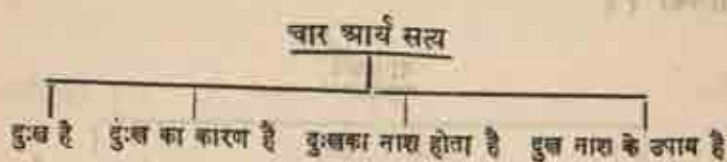 चार आर्य सत्य
दुःख है दुःख का कारण है दुःखका नाश होता है दुख नाश के उपाय है